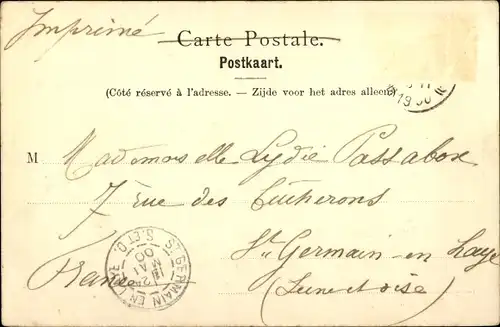 Imprimé
Carte Postale.
Postkaart.
(Côté réservé à l'adresse. — Zijde voor het adres alleen)
M Mademoiselle Lydie Passabosc
7 rue des Bûcherons
St Germain en Laye
France
(Seine et Oise)
ST GERMAIN EN LAYE
S. ET O.
MAI
00